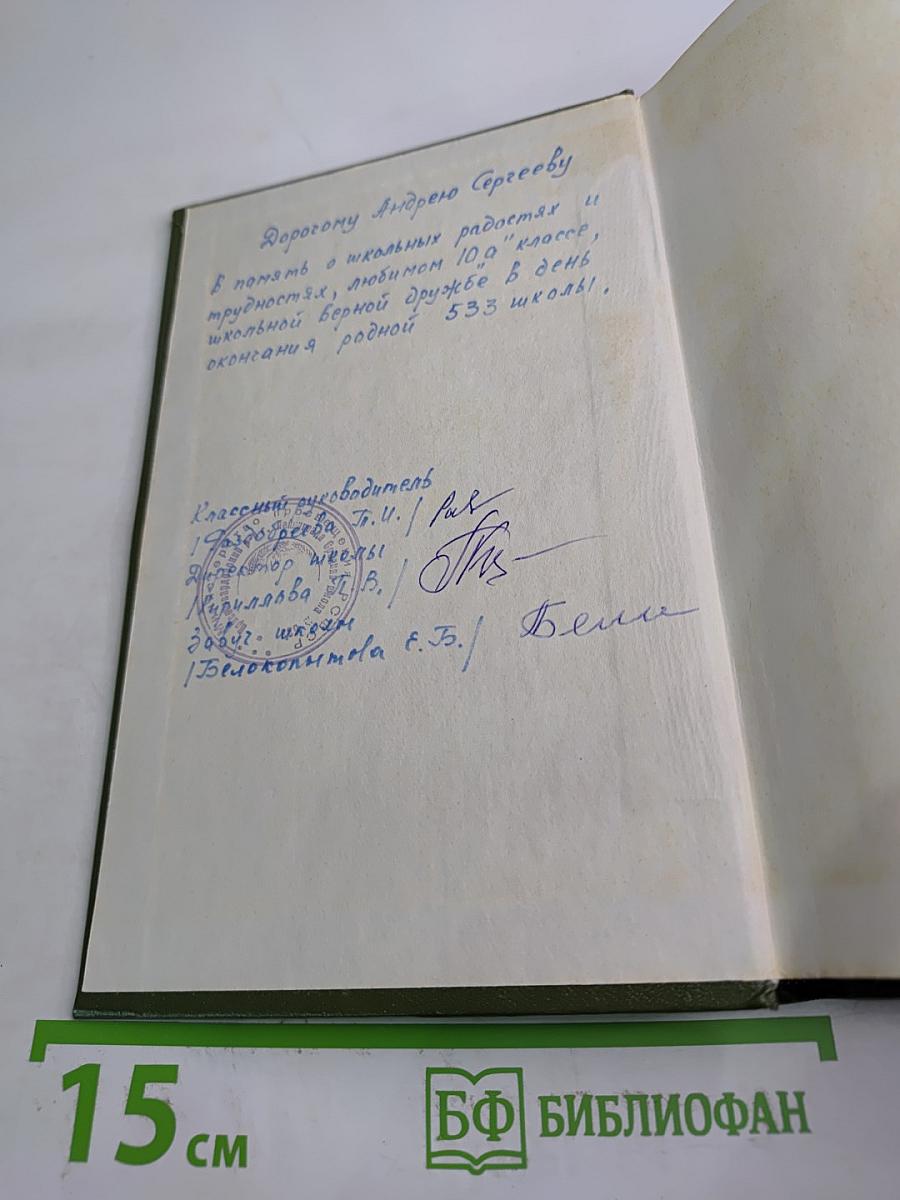 Дорогому Андрею Сергееву
в память о школьных радостях и
трудностях, любимом 10 "а" классе,
школьной верной дружбе в день
окончания родной 533 школы.
Классный руководитель
Т.И./
Директор школы
/Кириллова Т.В./
Завуч. школы
/Белокопытова Е.Б./
15 см
БФ БИБЛИОФАН